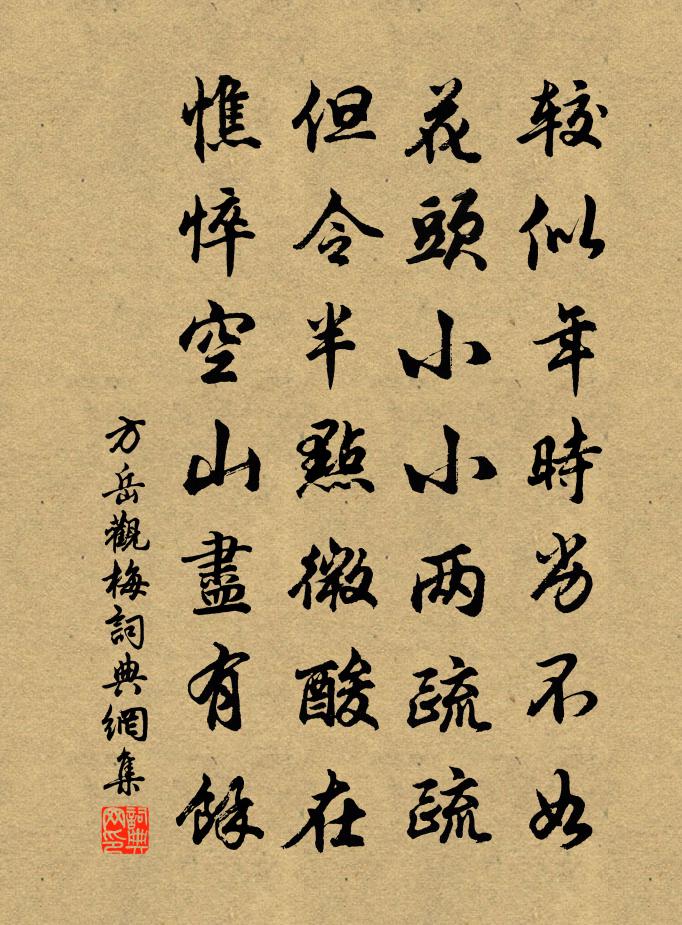 较似年時劣不如
花頭小小两疏疏
但令半點微酸在
憔悴空山盡有餘
方岳觀梅詞典網集
詞典網印